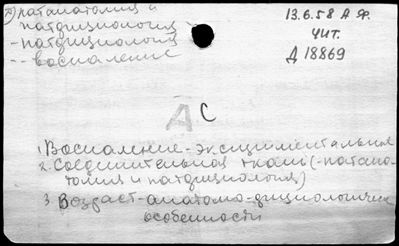 патанатомия и
патфициология
- патфициология
-- воспаление
13.6.58 А Ф.
чит.
Д 18869
А С
1. Воспаление - экспериментальная
2. Соединительная ткань (- патана-
томия и патфициология)
3. Возраст - анатомо-фициологические
особенности